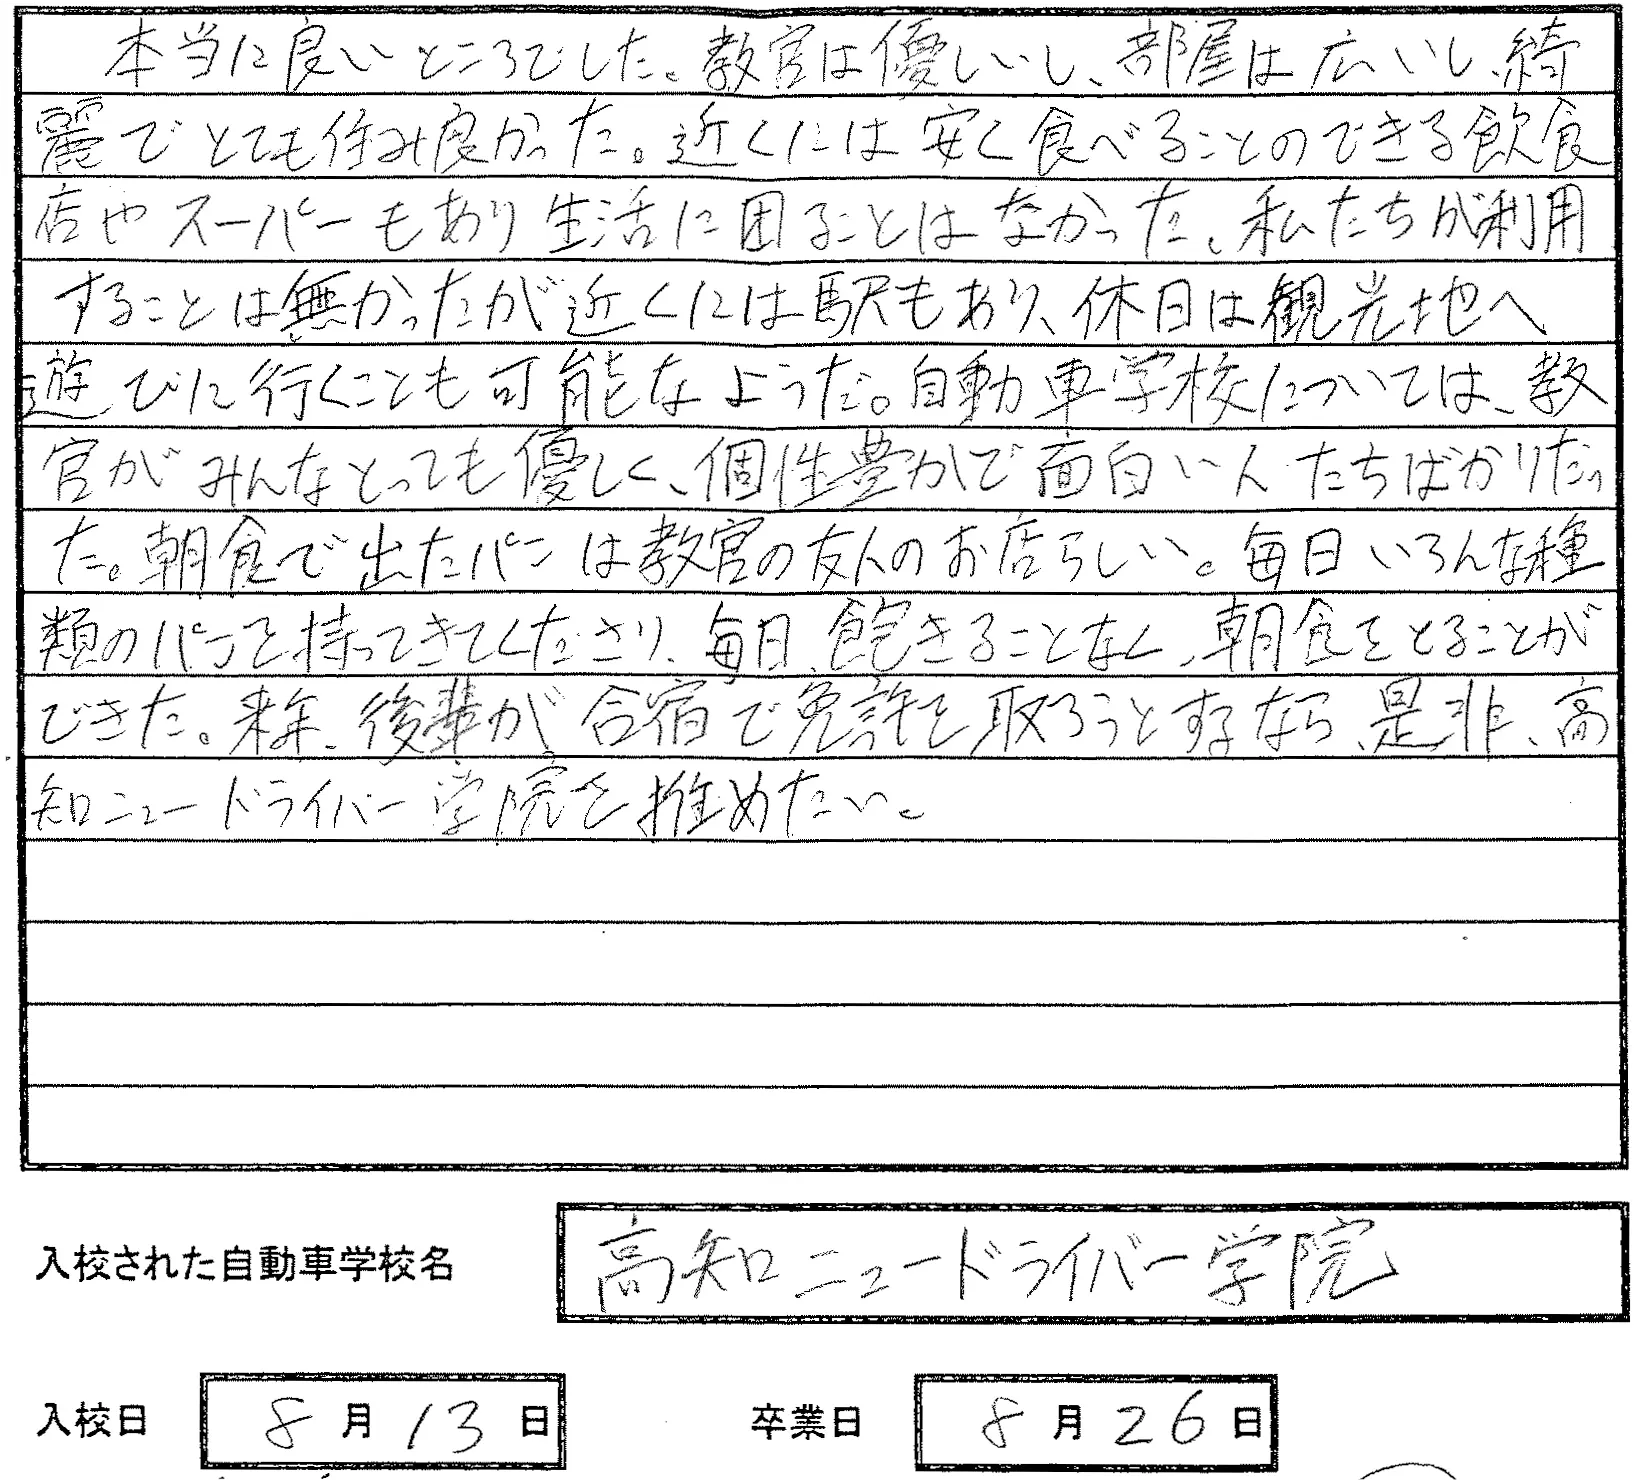 本当に良いところでした。教官は優しいし、部屋は広いし、綺
麗でとても住み良かった。近くには安く食べることのできる飲食
店やスーパーもあり生活に困ることはなかった。私たちが利用
することは無かったが近くには駅もあり、休日は観光地へ
遊びに行くことも可能なようだ。自動車学校については、教
官がみんなとっても優しく、個性豊かで面白い人たちばかりだっ
た。朝食で出たパンは教官の友人のお店らしい。毎日いろんな種
類のパンを持ってきてくださり、毎日、飽きることなく、朝食をとることが
できた。来年、後輩が合宿で免許を取ろうとするなら、是非、高
知ニュードライバー学院を推めたい。
入校された自動車学校名 高知ニュードライバー学院
入校日 8月13日 卒業日 8月26日